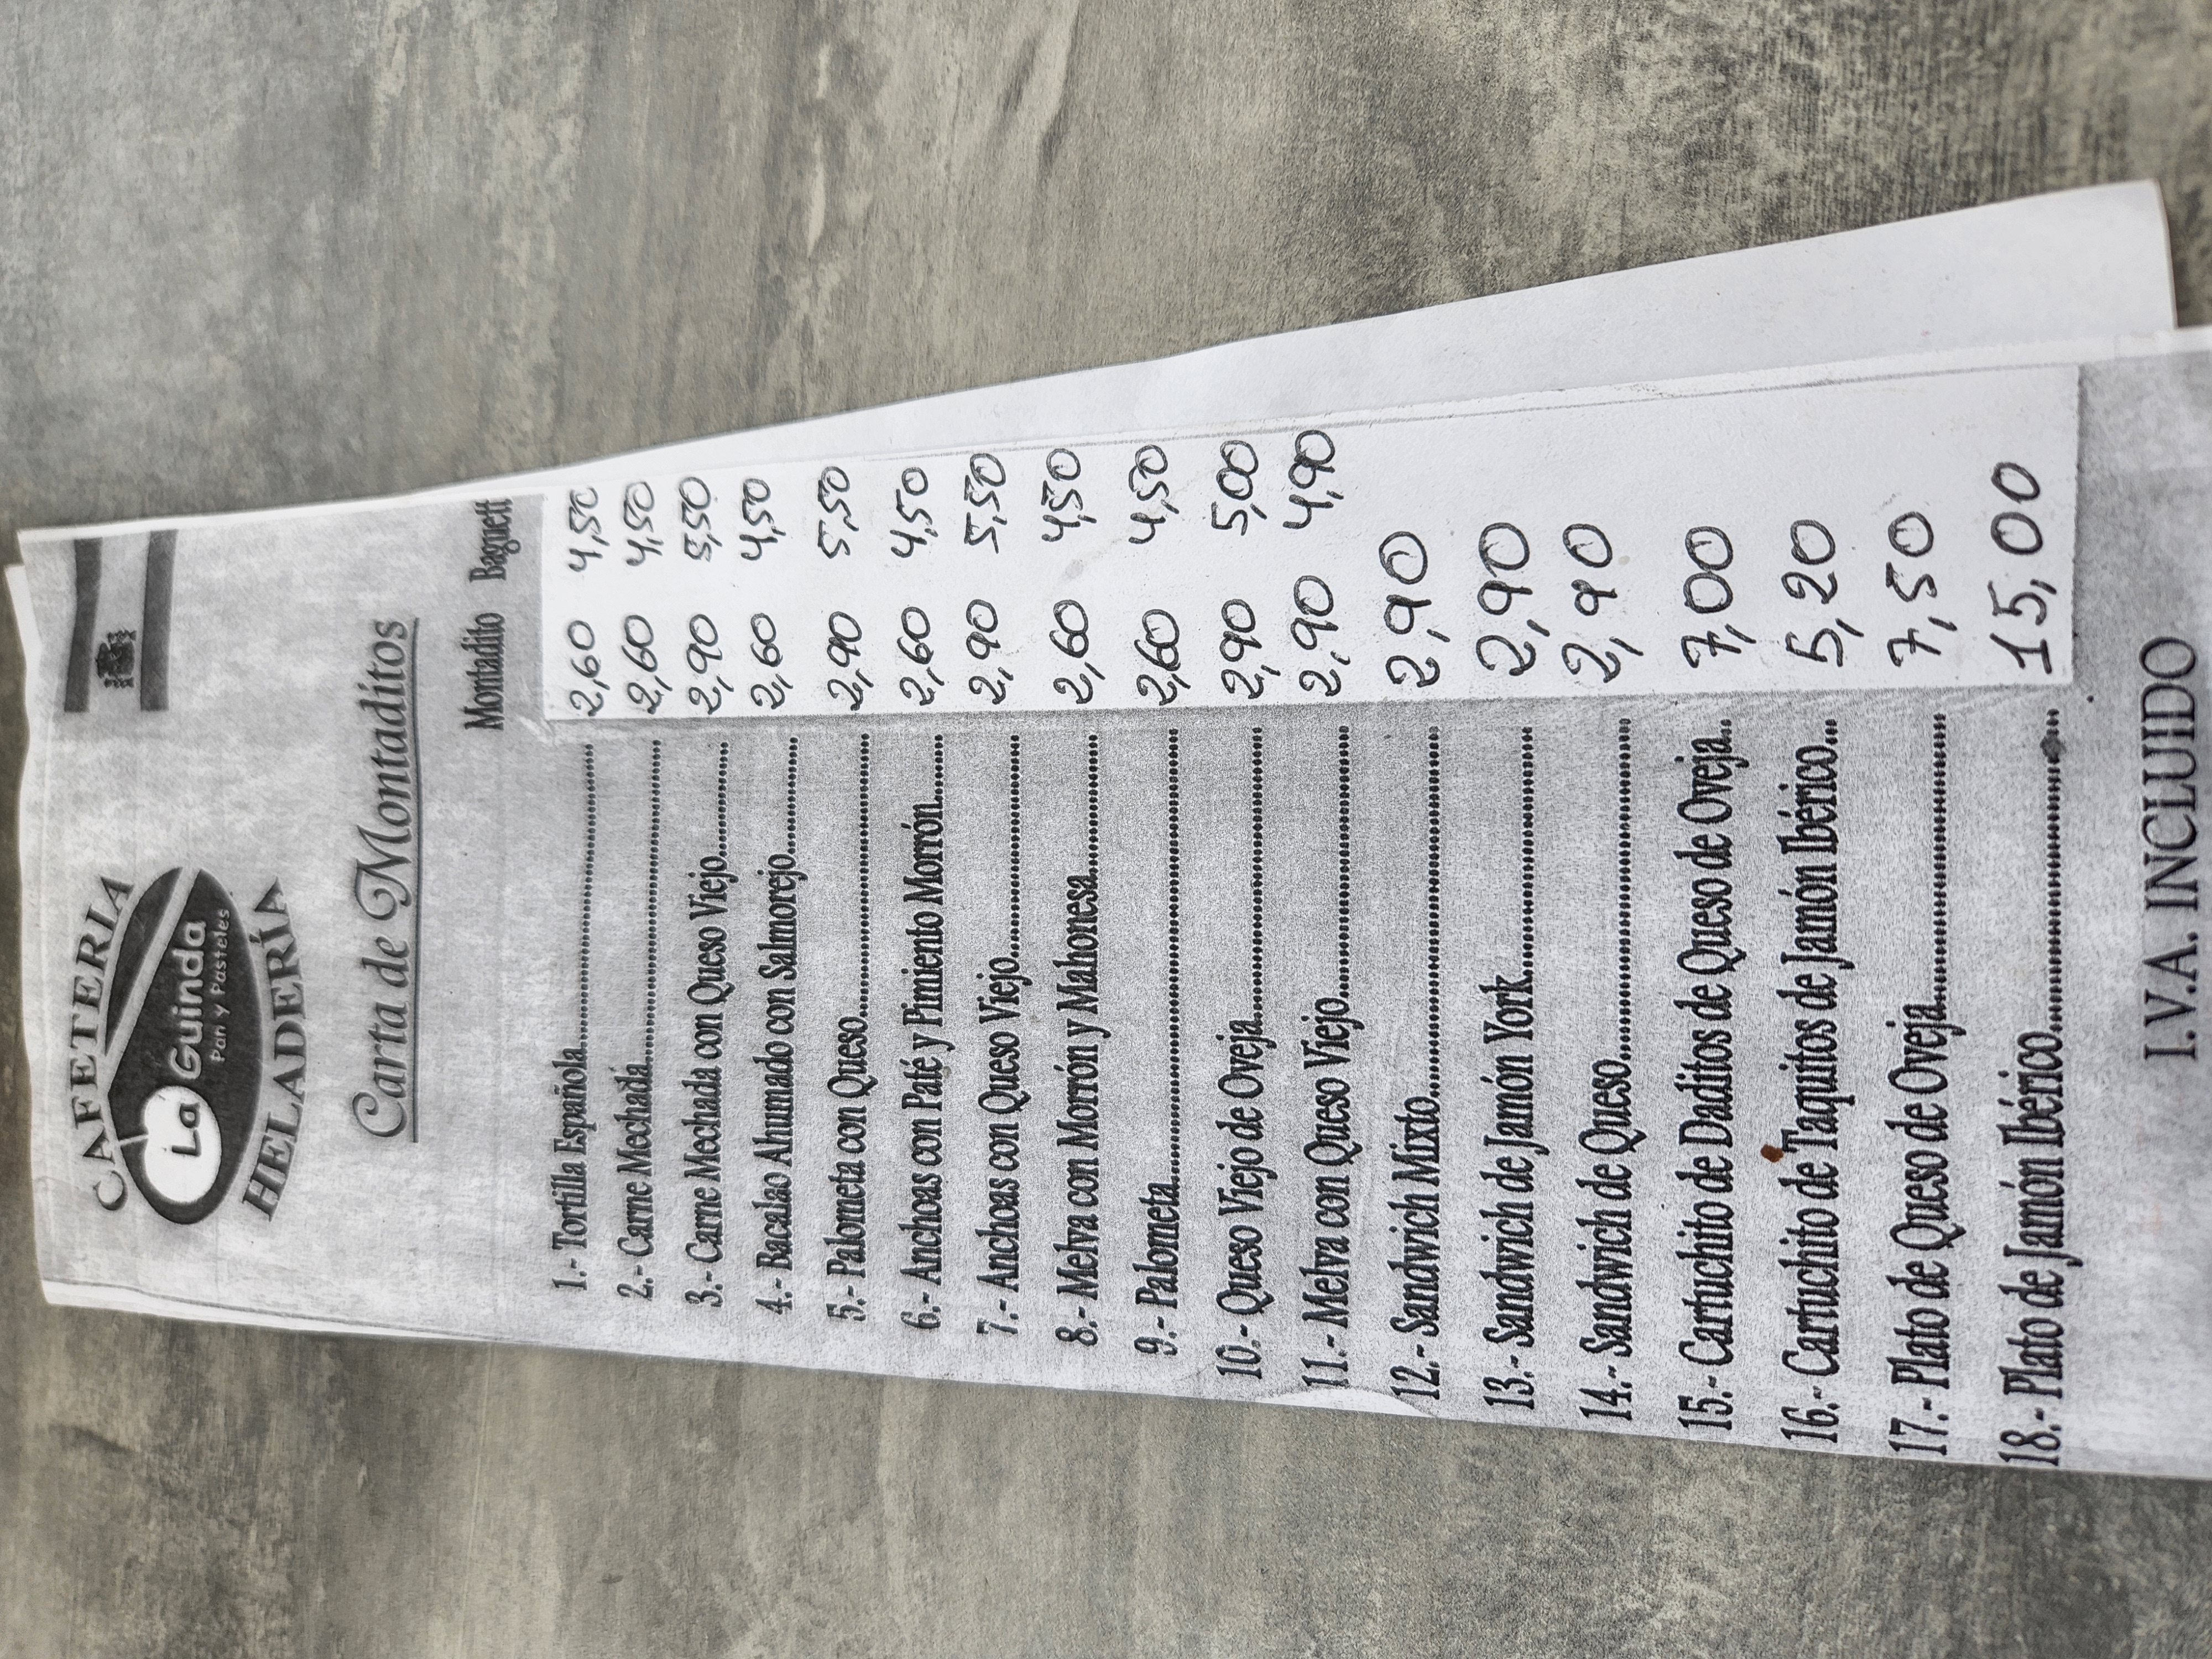 CAFETERIA
La Guinda
Pan Y Pasteles
HELADERÍA
Carta de Montaditos
Montadito Baguett
1.- Tortilla Española 2,60 4,50
2.- Carne Mechada 2,60 4,50
3.- Carne Mechada con Queso Viejo 2,90 5,50
4.- Bacalao Ahumado con Salmorejo 2,60 4,50
5.- Palometa con Queso 2,90 5,50
6.- Anchoas con Paté y Pimiento Morrón 2,60 4,50
7.- Anchoas con Queso Viejo 2,90 5,50
8.- Melva con Morrón y Mahonesa 2,60 4,50
9.- Palometa 2,60 4,50
10.- Queso Viejo de Oveja 2,90 5,00
11.- Melva con Queso Viejo 2,90 4,90
12.- Sandwich Mixto 2,90
13.- Sandwich de Jamón York 2,90
14.- Sandwich de Queso 2,90
15.- Cartuchito de Daditos de Queso de Oveja 7,00
16.- Cartuchito de Taquitos de Jamón Ibérico 5,20
17.- Plato de Queso de Oveja 7,50
18.- Plato de Jamón Ibérico 15,00
I.V.A. INCLUIDO